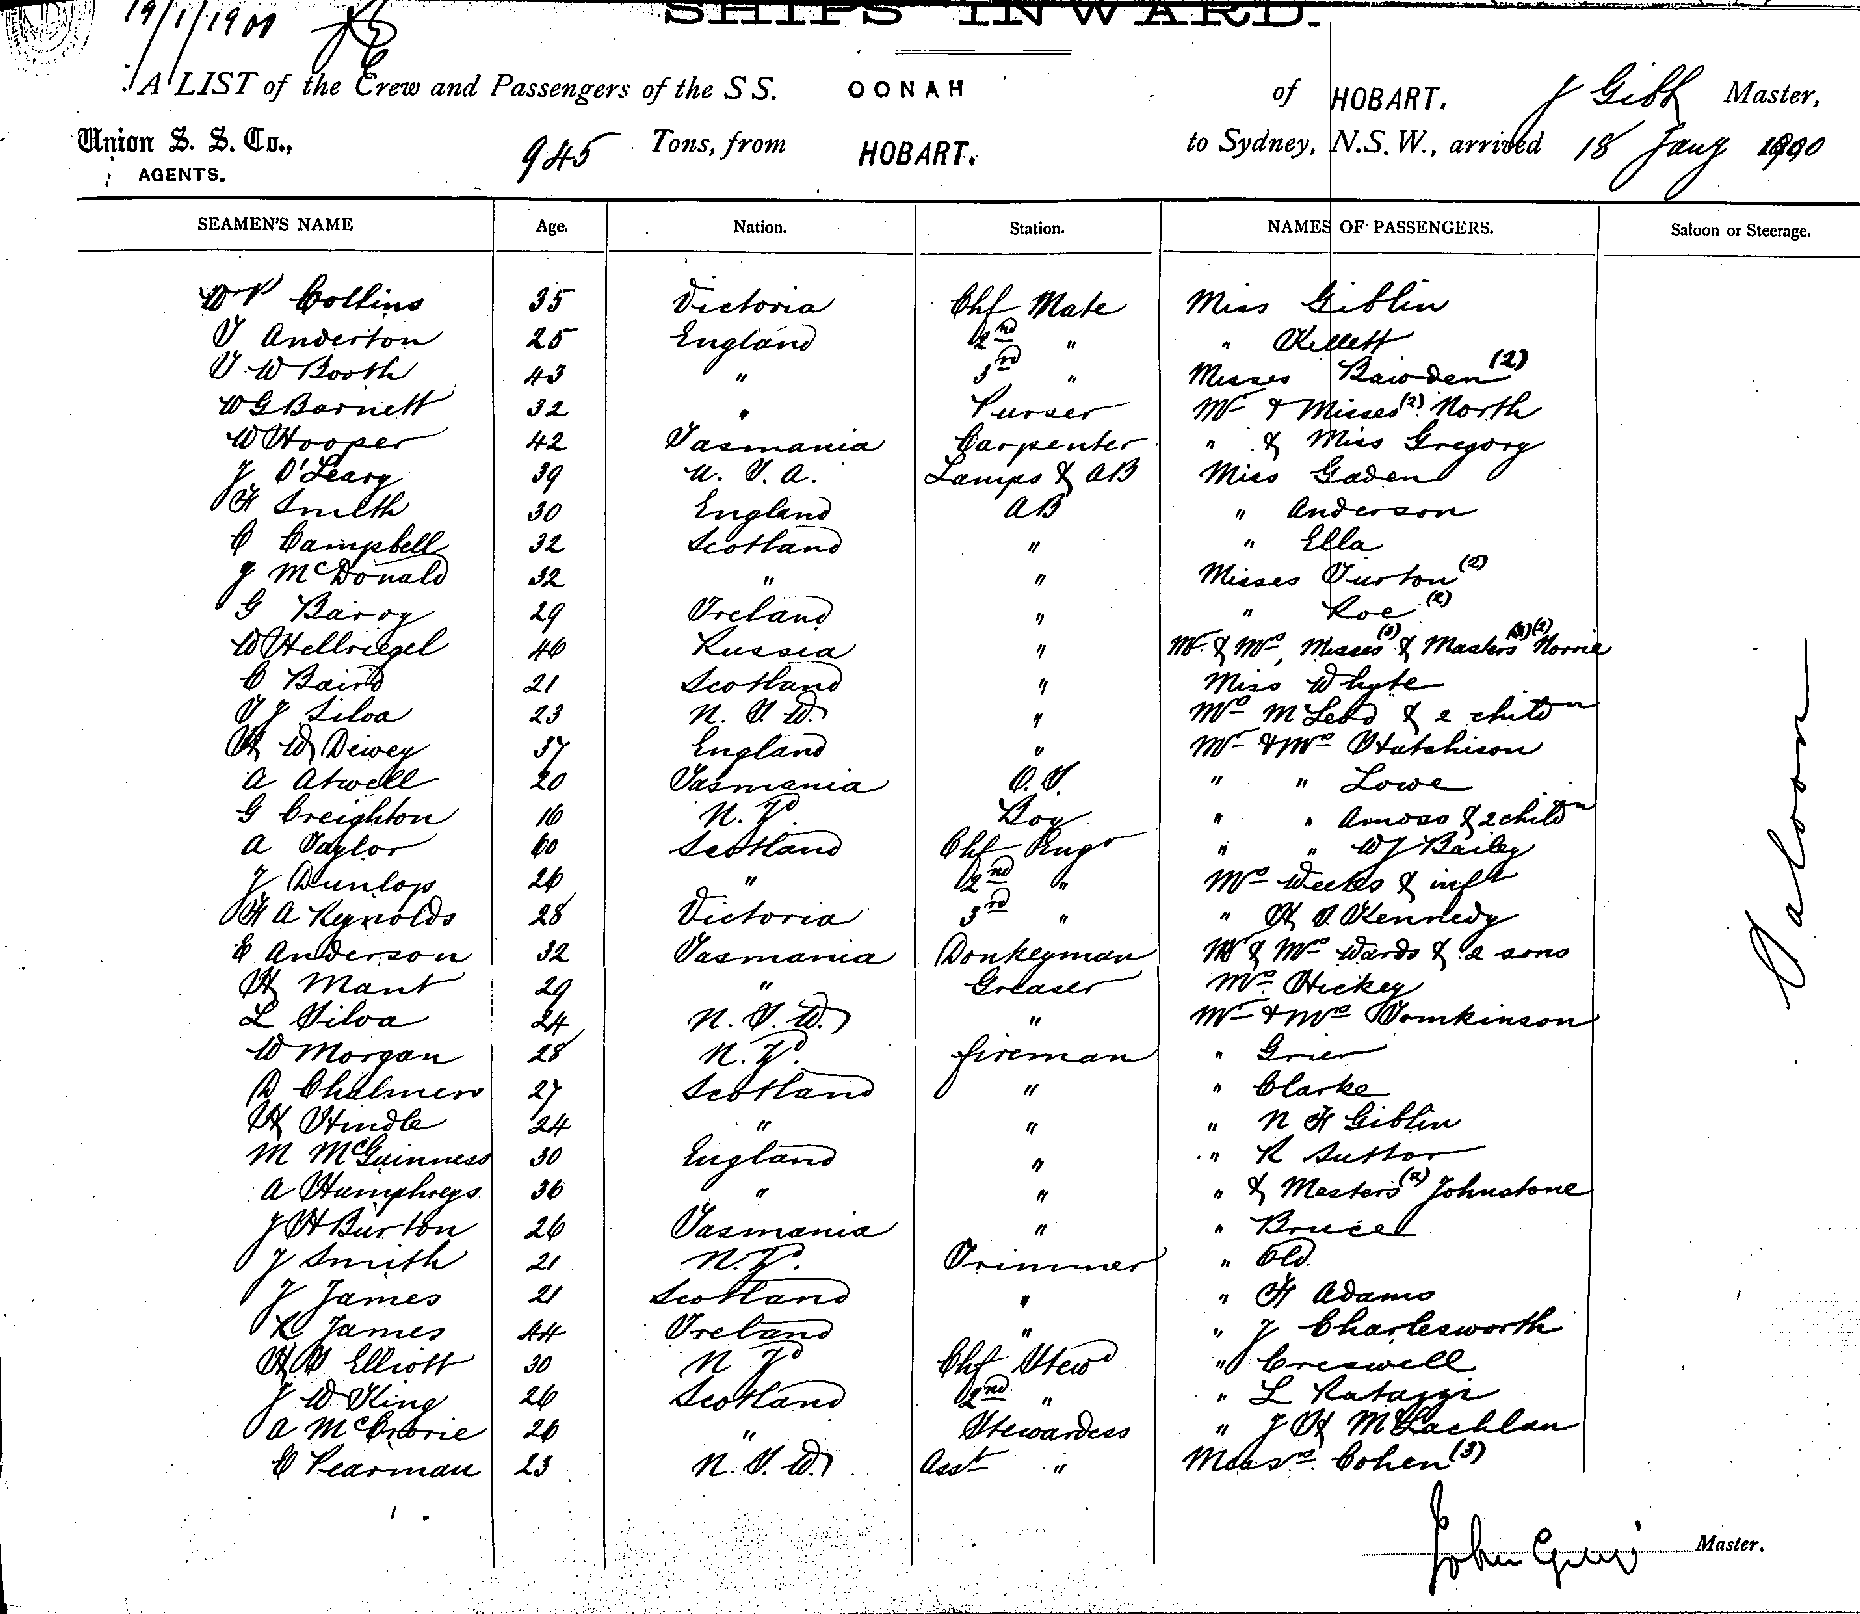 19/1/1900
SHIPS INWARD.
A LIST of the Crew and Passengers of the SS. OONAH of HOBART. J Gibb Master,
Union S. S. Co., AGENTS. 945 Tons, from HOBART. to Sydney, N.S.W., arrived 18 Jany 1900
SEAMEN'S NAME Age. Nation. Station. NAMES OF PASSENGERS. Saloon or Steerage.
W P Collins 35 Victoria Chf Mate Miss Giblin
T Anderton 25 England 2nd " " Kellett
T W Booth 43 " 3rd " Misses Bawden (2)
W G Barnett 32 " Purser Mr & Misses (2) North
W Hooper 42 Tasmania Carpenter " & Miss Gregory
J O'Leary 39 U. S. A. Lamps & AB Miss Gaden
H Smith 30 England AB " Anderson
C Campbell 32 Scotland " " Ella
J McDonald 32 " " Misses Turton (2)
G Barry 29 Ireland " " Roe (2)
W Hellriegel 40 Russia " Mr & Mrs, Misses (3) & Masters (2) Norrie
C Baird 21 Scotland " Miss Whyte
T J Silva 23 N. S. W. " Mrs McLeod & 2 childn
H W Dewey 37 England " Mr & Mrs Hutchison
A Atwell 20 Tasmania O.S. " " Lowe
G Creighton 16 N. Zd. Boy " " Amoss & 2 childn
A Taylor 60 Scotland Chf Engr " " W J Bailey
J Dunlop 26 " 2nd " Mrs Weeks & inft
H A Reynolds 28 Victoria 3rd " " H S Kennedy
E Anderson 32 Tasmania Donkeyman Mr & Mrs Wards & 2 sons
H Mant 29 " Greaser Mrs Hickey
L Silva 24 N. S. W. " Mr & Mrs Tomkinson
W Morgan 28 N. Zd. fireman " Grier
D Chalmers 27 Scotland " " Clarke
H Hindle 24 " " " N H Giblin
M McGuinness 30 England " " R Suttor
A Humphreys 36 " " " & Masters (2) Johnstone
J H Burton 26 Tasmania " " Bruce
J Smith 21 N. Zd. Trimmer " Old
J James 21 Scotland " " H Adams
R James 44 Ireland " " J Charlesworth
H S Elliott 30 N Zd Chf Stewd " Creswell
J W King 26 Scotland 2nd " " L Ratazzi
A McCrorie 26 " Stewardess " J H McLachlan
C Pearman 23 N. S. W. Asst " Messrs Cohen (3)
Saloon
John Master.